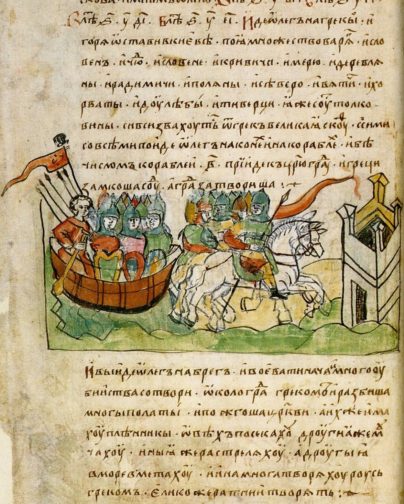 иде ѡлегъ на грекы · и
горѧ ѡстави въ киевѣ · поѧ множество варѧ · и сло
венъ · и чю · и словене · и кривичи · и мерю · и деревлѧ
ны · и радимичи · и полѧны · и сѣверо · и вѧтичи · и хо
рваты · и доулѣбы · и тиверци · ꙗже соу толко
вины · си вси звахоуть ѿ грекъ великаѧ скоу · с сими
со всѣми поиде ѡлегъ на конехъ и на корабле · и бѣ
числомъ кораблеи · в҃ · прииде къ црюграду · и греци
замкоша соу · а гра затвориша
и выиде ѡлегъ на брегъ · и воевати нача · и много оу
бииства сотвори · ѡколо гра грекомъ · и разбиша
многы полаты · и пожгоша цркви · а ихже има
хоу плѣнникы · ѡвѣхъ посекахоу · дроугиꙗ же м
чахоу · иныꙗ же растрелѧхоу · а дроугыꙗ
в море вметахоу · и ина многа творѧхоу роусь
грекомъ · елико же ратнии творѧть